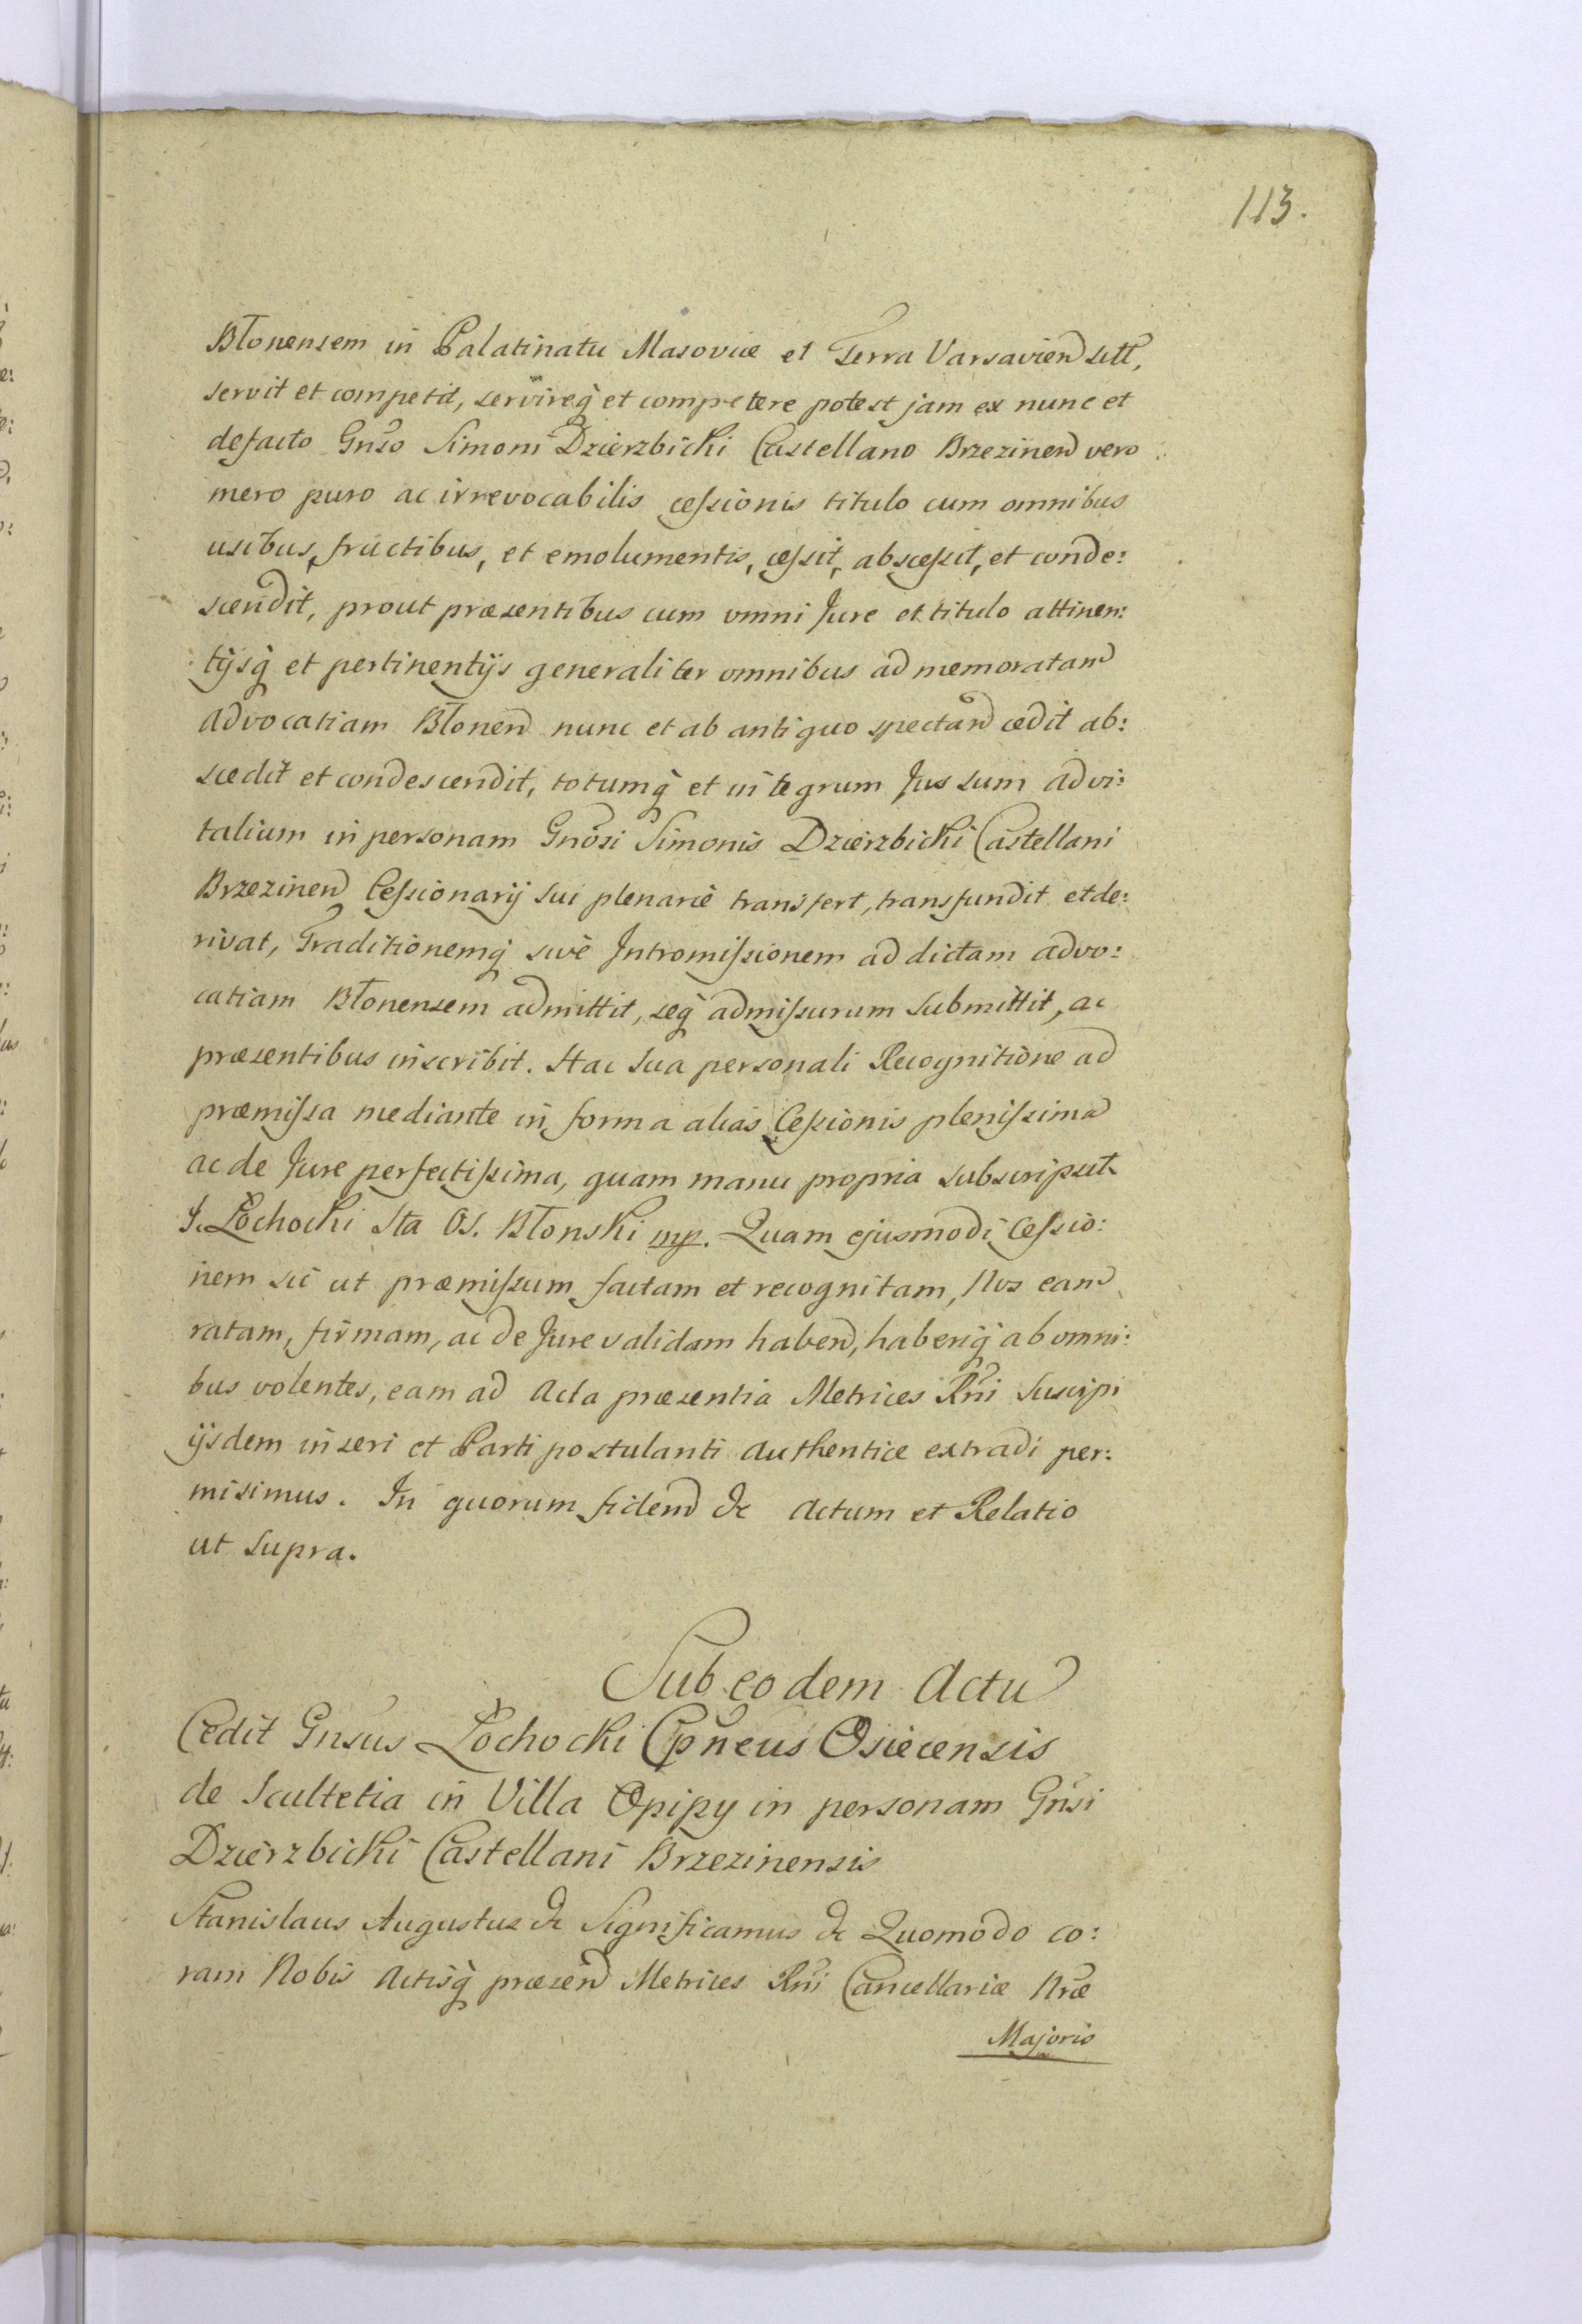 113.
Błonensem in Palatinatu Masoviæ et Terra Varsavien sitt,
servit et competit, servireq̃ et competere potest jam ex nunc et
defacto Gnso Simoni Dzierzbicki Castellano Brzezinen vero
mero puro ac irrevocabilis cessionis titulo cum omnibus
usibus, fructibus, et emolumentis, cessit, abscessit, et conde:
scendit, prout præsentibus cum omni Jure et titulo attinen:
tijsq̃ et pertinentijs generaliter omnibus ad memoratam
Advocatiam Błonen nunc et ab antiquo spectan cedit ab:
scedit et condescendit, totumq̃ et integrum Jus sum advi:
talium in personam Gnosi Simonis Dzierzbicki Castellani
Brzezinen Cessionarij sui plenarie transfert, transfundit et de:
rivat, Traditionemq̃ sive Intromissionem ad dictam advo:
catiam Błonensem admittit, seq̃ admissurum submittit, ac
præsentibus inscribit. Hac sua personali Recognitione ad
præmissa mediante in forma alias Cessionis plenissima
ac de Jure perfectissima, quam manu propria subscripsit
J. Łochocki Sta Os. Błonski mp. Quam ejusmodi Cessio:
nem sic ut præmissum factam et recognitam, Nos eam
ratam, firmam, ac de Jure validam haben, haberiq̃ ab omni:
bus volentes, eam ad Acta præsentia Metrices Rñi Suscipi
ijsdem inseri et Parti postulanti authentice extradi per:
misimus. In quorum fidem &c Actum et Relatio
ut supra.
Sub eodem Actu
Cedit Gnsus Łochocki Cpneus Osiecensis
de Scultetia in Villa Opipy in personam Gnsi
Dzierzbicki Castellani Brzezinensis
Stanislaus Augustus &c Significamus &c Quomodo co:
ram Nobis Actisq̃ præsen Metrices Rñi Cancellariæ Nræ
Majoris